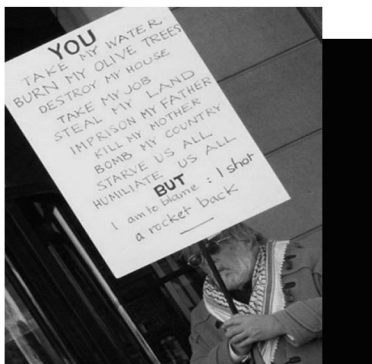 YOU
TAKE MY WATER.
BURN MY OLIVE TREES
DESTROY MY HOUSE
TAKE MY JOB
STEAL MY LAND
IMPRISON MY FATHER
KILL MY MOTHER
BOMB MY COUNTRY
STARVE US ALL
HUMILIATE US ALL
BUT
I am to blame: I shot
a rocket back